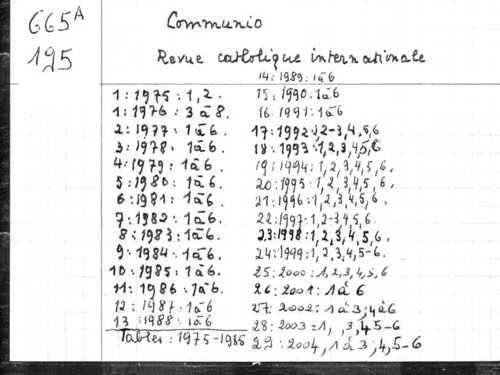 665A
195
Communio
Revue catholique internationale
1:1975:1,2.
1:1976:3 à 8.
2:1977:1à6.
3:1978:1à6.
4:1979:1à6.
5:1980:1à6.
6:1981:1à6.
7:1982:1à6.
8:1983:1à6.
9:1984:1à6.
10:1985:1à6.
11:1986:1à6.
12:1987:1à6
13:1988:1à6
Tables:1975-1985
14:1989:1à6
15:1990:1à6
16:1991:1à6
17:1992:1,2-3,4,5,6
18:1993:1,2,3,4,5,6
19:1994:1,2,3,4,5,6.
20:1995:1,2,3,4,5,6.
21:1996:1,2,3,4,5,6.
22:1997:1,2-3,4,5,6
23:1998:1,2,3,4,5,6.
24:1999:1,2,3,4,5-6.
25:2000:1,2,3,4,5,6
26:2001:1à6
27:2002:1à3;4à6
28:2003:1, ,3,4,5-6
29:2004,1à3;4,5-6